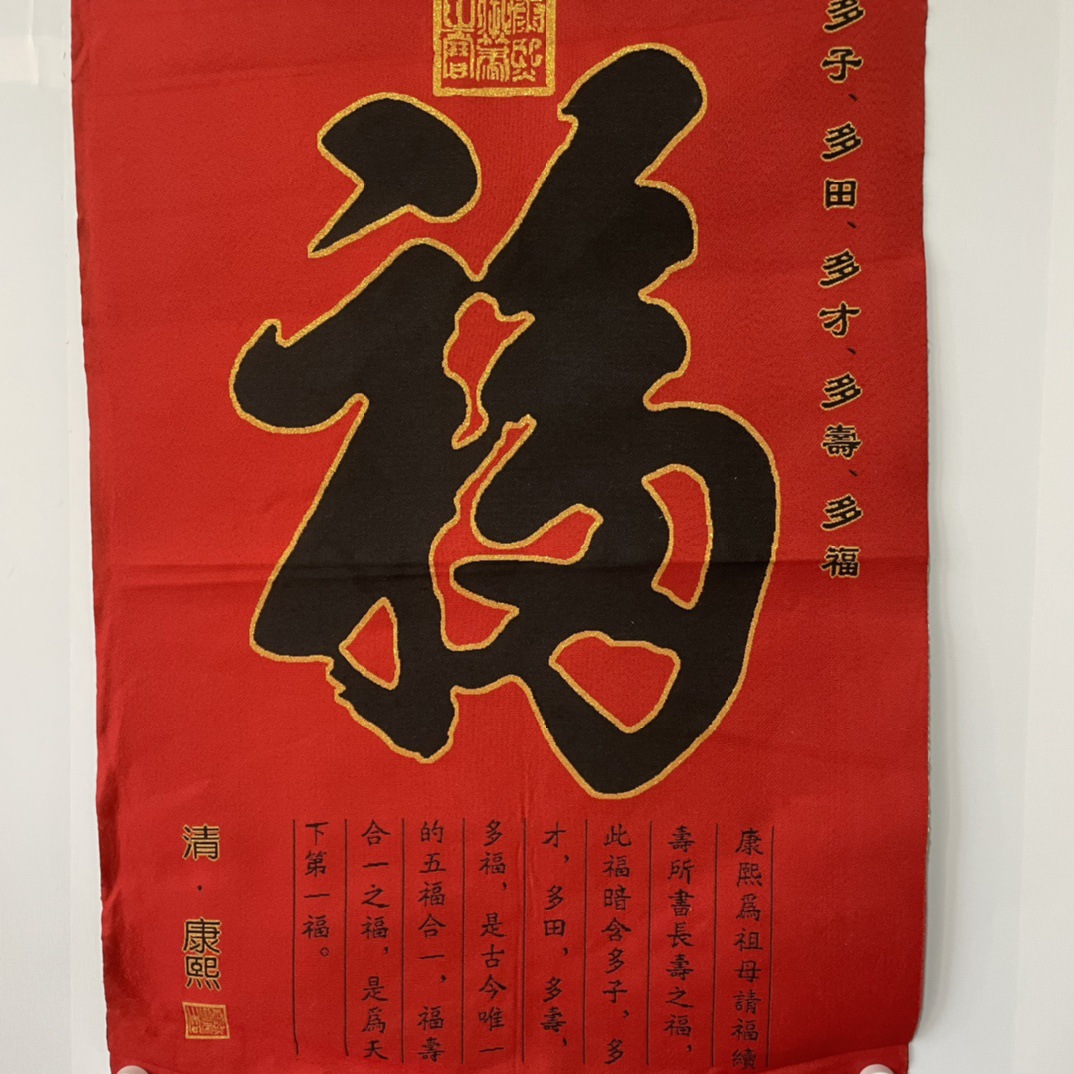 多子、多田、多才、多壽、多福
福
康熙爲祖母請福續
壽所書長壽之福，
此福暗含多子，多
才，多田，多壽，
多福，是古今唯一
的五福合一，福壽
合一之福，是爲天
下第一福。
清·康熙